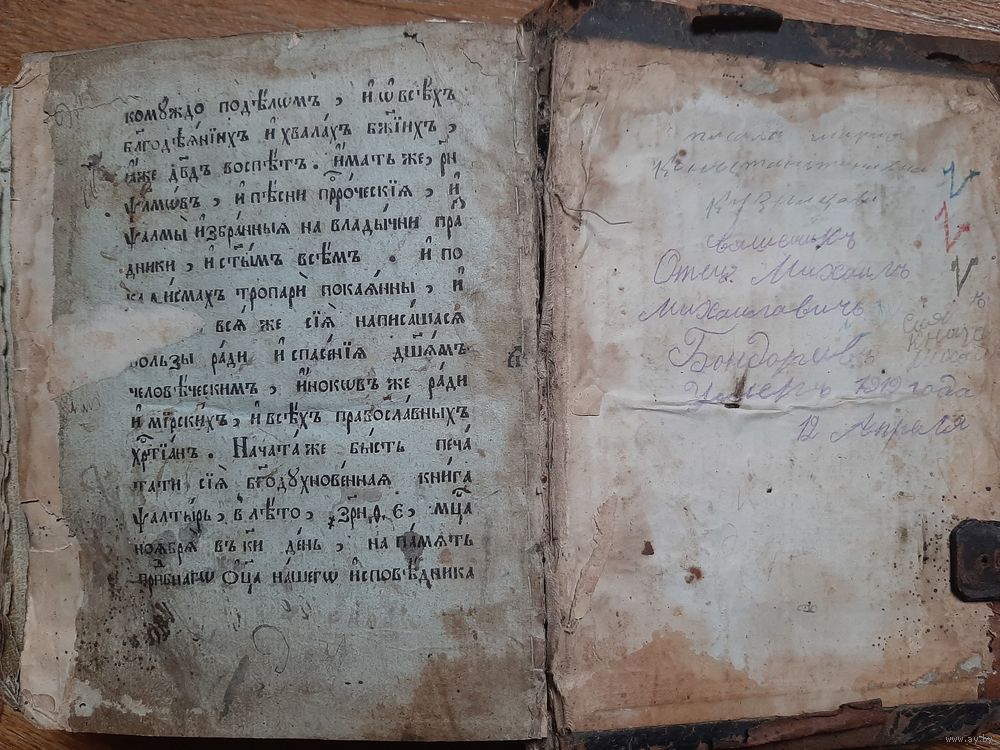 комꙋждо под̾ѣлѡмъ , и҆ ѡ҆ всѣхъ
бл҃годѣѧ́нїихъ и҆ хвала́хъ бж҃їихъ ,
ꙗ҆́же дв҃дъ воспѣ́тъ . и҆́мать же , рн҃
ѱалмѡ́въ , и҆ пѣ́сни прⷪ҇ро́ческїѧ , и҆
ѱалмы̀ и҆збра́нныѧ на влады́чни пра́
дники , и҆ ст҃ы́мъ всѣ́мъ . и҆ по
тропарѝ покаѧ́нны , и҆
всѧ̑ же сїѧ̑ написа́шасѧ
ра́ди и҆ спасе́нїѧ дш҃а́мъ
человѣ́ческимъ , и҆́нокѡвъ же ра́ди
и҆ мїрски́хъ , и҆ всѣ́хъ правосла́вныхъ
хрⷭ҇тїа́нъ . Нача́та же бы́сть печа́
тати сїѧ̀ бг҃одꙋхнове́нная кни́га
ѱалты́рь , в лѣ́то , ҂зрн . ѳ . є҆ , мцⷭ҇а
ноѧ́брѧ въ ки де́нь , на па́мѧть
прпⷣбнагѡ ѻ҆ц҃а̀ на́шегѡ и҆сповѣ́дника
Константиновна
Отец Михаилъ
Михаиловичь
Бондарев
Умеръ 1919 года
сия
книга
12 Апреля
www.ay.by